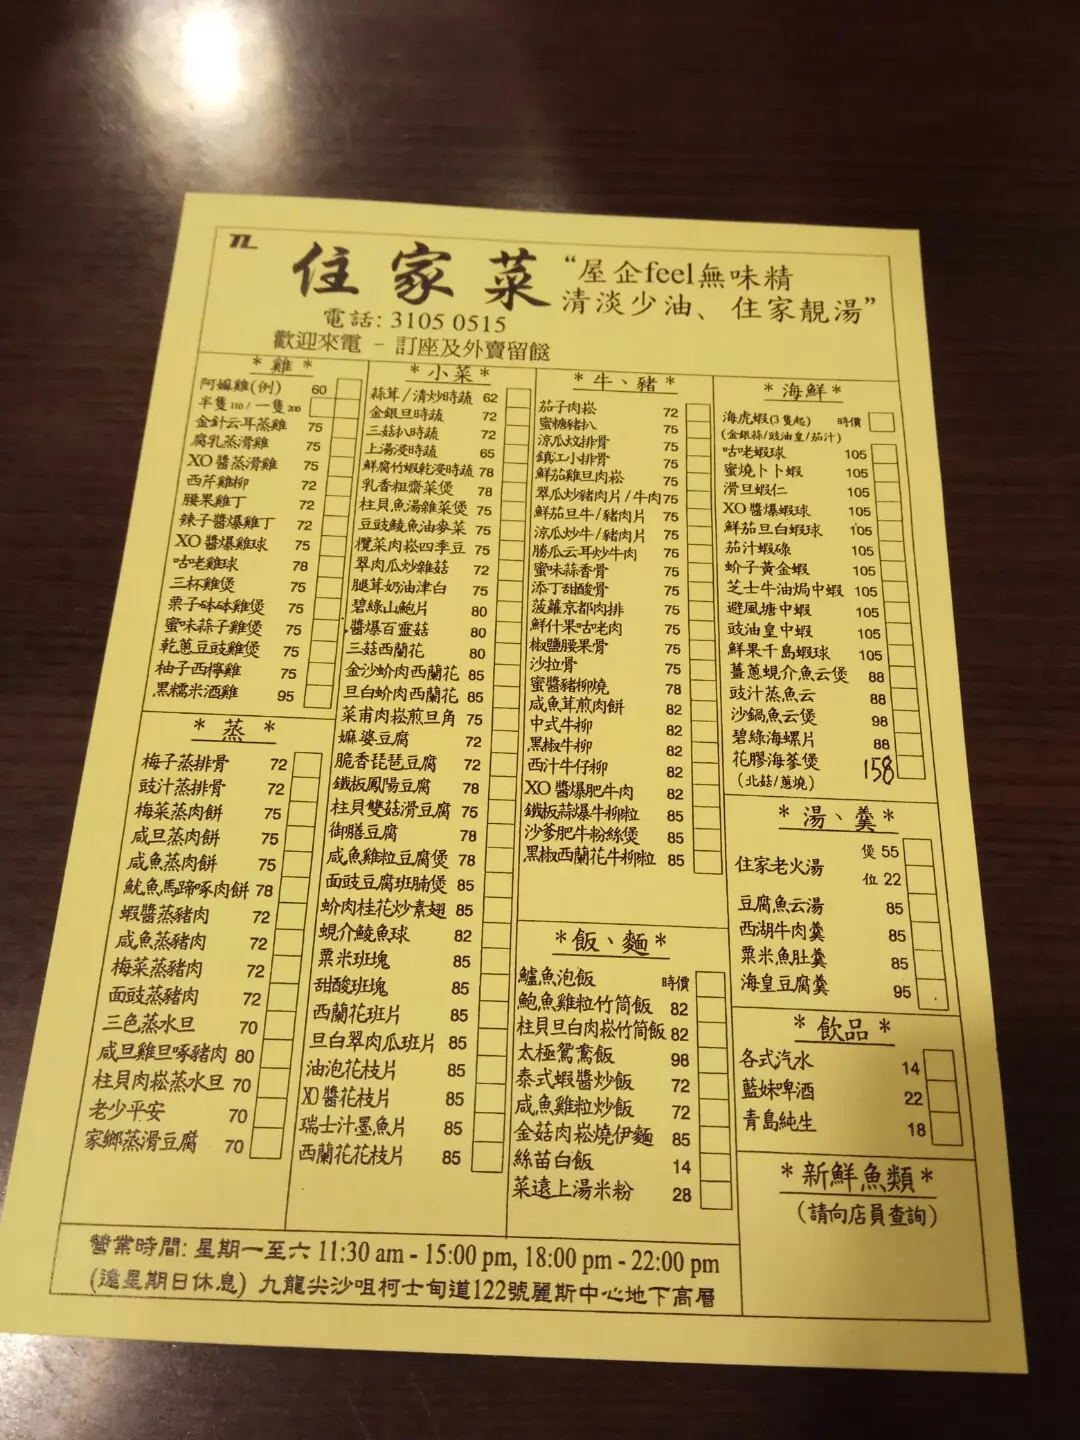 TL
住家菜
“屋企feel無味精
清淡少油、住家靚湯”
電話: 3105 0515
歡迎來電 - 訂座及外賣留餸
* 雞 *
阿嫲雞(例) 60
半隻110/一隻200
金針云耳蒸雞 75
腐乳蒸滑雞 75
XO醬蒸滑雞 75
西芹雞柳 72
腰果雞丁 72
辣子醬爆雞丁 72
XO醬爆雞球 75
咕老雞球 78
三杯雞煲 75
栗子砵砵雞煲 75
蜜味蒜子雞煲 75
乾蔥豆豉雞煲 75
柚子西檸雞 75
黑糯米酒雞 95
* 蒸 *
梅子蒸排骨 72
豉汁蒸排骨 72
梅菜蒸肉餅 75
咸旦蒸肉餅 75
咸魚蒸肉餅 75
魷魚馬蹄啄肉餅 78
蝦醬蒸豬肉 72
咸魚蒸豬肉 72
梅菜蒸豬肉 72
面豉蒸豬肉 72
三色蒸水旦 70
咸旦雞旦啄豬肉 80
柱貝肉崧蒸水旦 70
老少平安 70
家鄉蒸滑豆腐 70
* 小菜 *
蒜茸/清炒時蔬 62
金銀旦時蔬 72
三菇扒時蔬 72
上湯浸時蔬 65
鮮腐竹蝦乾浸時蔬 78
乳香粗齋菜煲 78
柱貝魚湯雜菜煲 75
豆豉鯪魚油麥菜 75
欖菜肉崧四季豆 75
翠肉瓜炒雜菇 72
腿茸奶油津白 75
碧綠山鮑片 80
醬爆百靈菇 80
三菇西蘭花 80
金沙蚧肉西蘭花 85
旦白蚧肉西蘭花 85
菜甫肉崧煎旦角 75
嫲婆豆腐 72
脆香琵琶豆腐 72
鐵板鳳陽豆腐 78
柱貝雙菇滑豆腐 75
御膳豆腐 78
咸魚雞粒豆腐煲 78
面豉豆腐班腩煲 85
蚧肉桂花炒素翅 85
蜆介鯪魚球 82
粟米班塊 85
甜酸班塊 85
西蘭花班片 85
旦白翠肉瓜班片 85
油泡花枝片 85
XO醬花枝片 85
瑞士汁墨魚片 85
西蘭花花枝片 85
* 牛、豬 *
茄子肉崧 72
蜜糖豬扒 75
涼瓜炆排骨 75
鎮江小排骨 75
鮮茄雞旦肉崧 75
翠瓜炒豬肉片/牛肉 75
鮮茄旦牛/豬肉片 75
涼瓜炒牛/豬肉片 75
勝瓜云耳炒牛肉 75
蜜味蒜香骨 75
添丁甜酸骨 75
菠蘿京都肉排 75
鮮什果咕老肉 75
椒鹽腰果骨 75
沙拉骨 75
蜜醬豬柳燒 78
咸魚茸煎肉餅 82
中式牛柳 82
黑椒牛柳 82
西汁牛仔柳 82
XO醬爆肥牛肉 82
鐵板蒜爆牛柳粒 85
沙爹肥牛粉絲煲 85
黑椒西蘭花牛柳粒 85
* 飯、麵 *
鱸魚泡飯 時價
鮑魚雞粒竹筒飯 82
柱貝旦白肉崧竹筒飯 82
太極鴛鴦飯 98
泰式蝦醬炒飯 72
咸魚雞粒炒飯 72
金菇肉崧燒伊麵 85
絲苗白飯 14
菜遠上湯米粉 28
* 海鮮 *
海虎蝦(3隻起) 時價
(金銀蒜/豉油皇/茄汁)
咕咾蝦球 105
蜜燒卜卜蝦 105
滑旦蝦仁 105
XO醬爆蝦球 105
鮮茄旦白蝦球 105
茄汁蝦碌 105
蚧子黃金蝦 105
芝士牛油焗中蝦 105
避風塘中蝦 105
豉油皇中蝦 105
鮮果千島蝦球 105
薑蔥蜆介魚云煲 88
豉汁蒸魚云 88
沙鍋魚云煲 98
碧綠海螺片 88
花膠海蔘煲 158
(北菇/蔥燒)
* 湯、羹 *
住家老火湯 煲 55
位 22
豆腐魚云湯 85
西湖牛肉羹 85
粟米魚肚羹 85
海皇豆腐羹 95
* 飲品 *
各式汽水 14
藍妹啤酒 22
青島純生 18
* 新鮮魚類 *
(請向店員查詢)
營業時間: 星期一至六 11:30 am - 15:00 pm, 18:00 pm - 22:00 pm
(逢星期日休息) 九龍尖沙咀柯士甸道122號麗斯中心地下高層